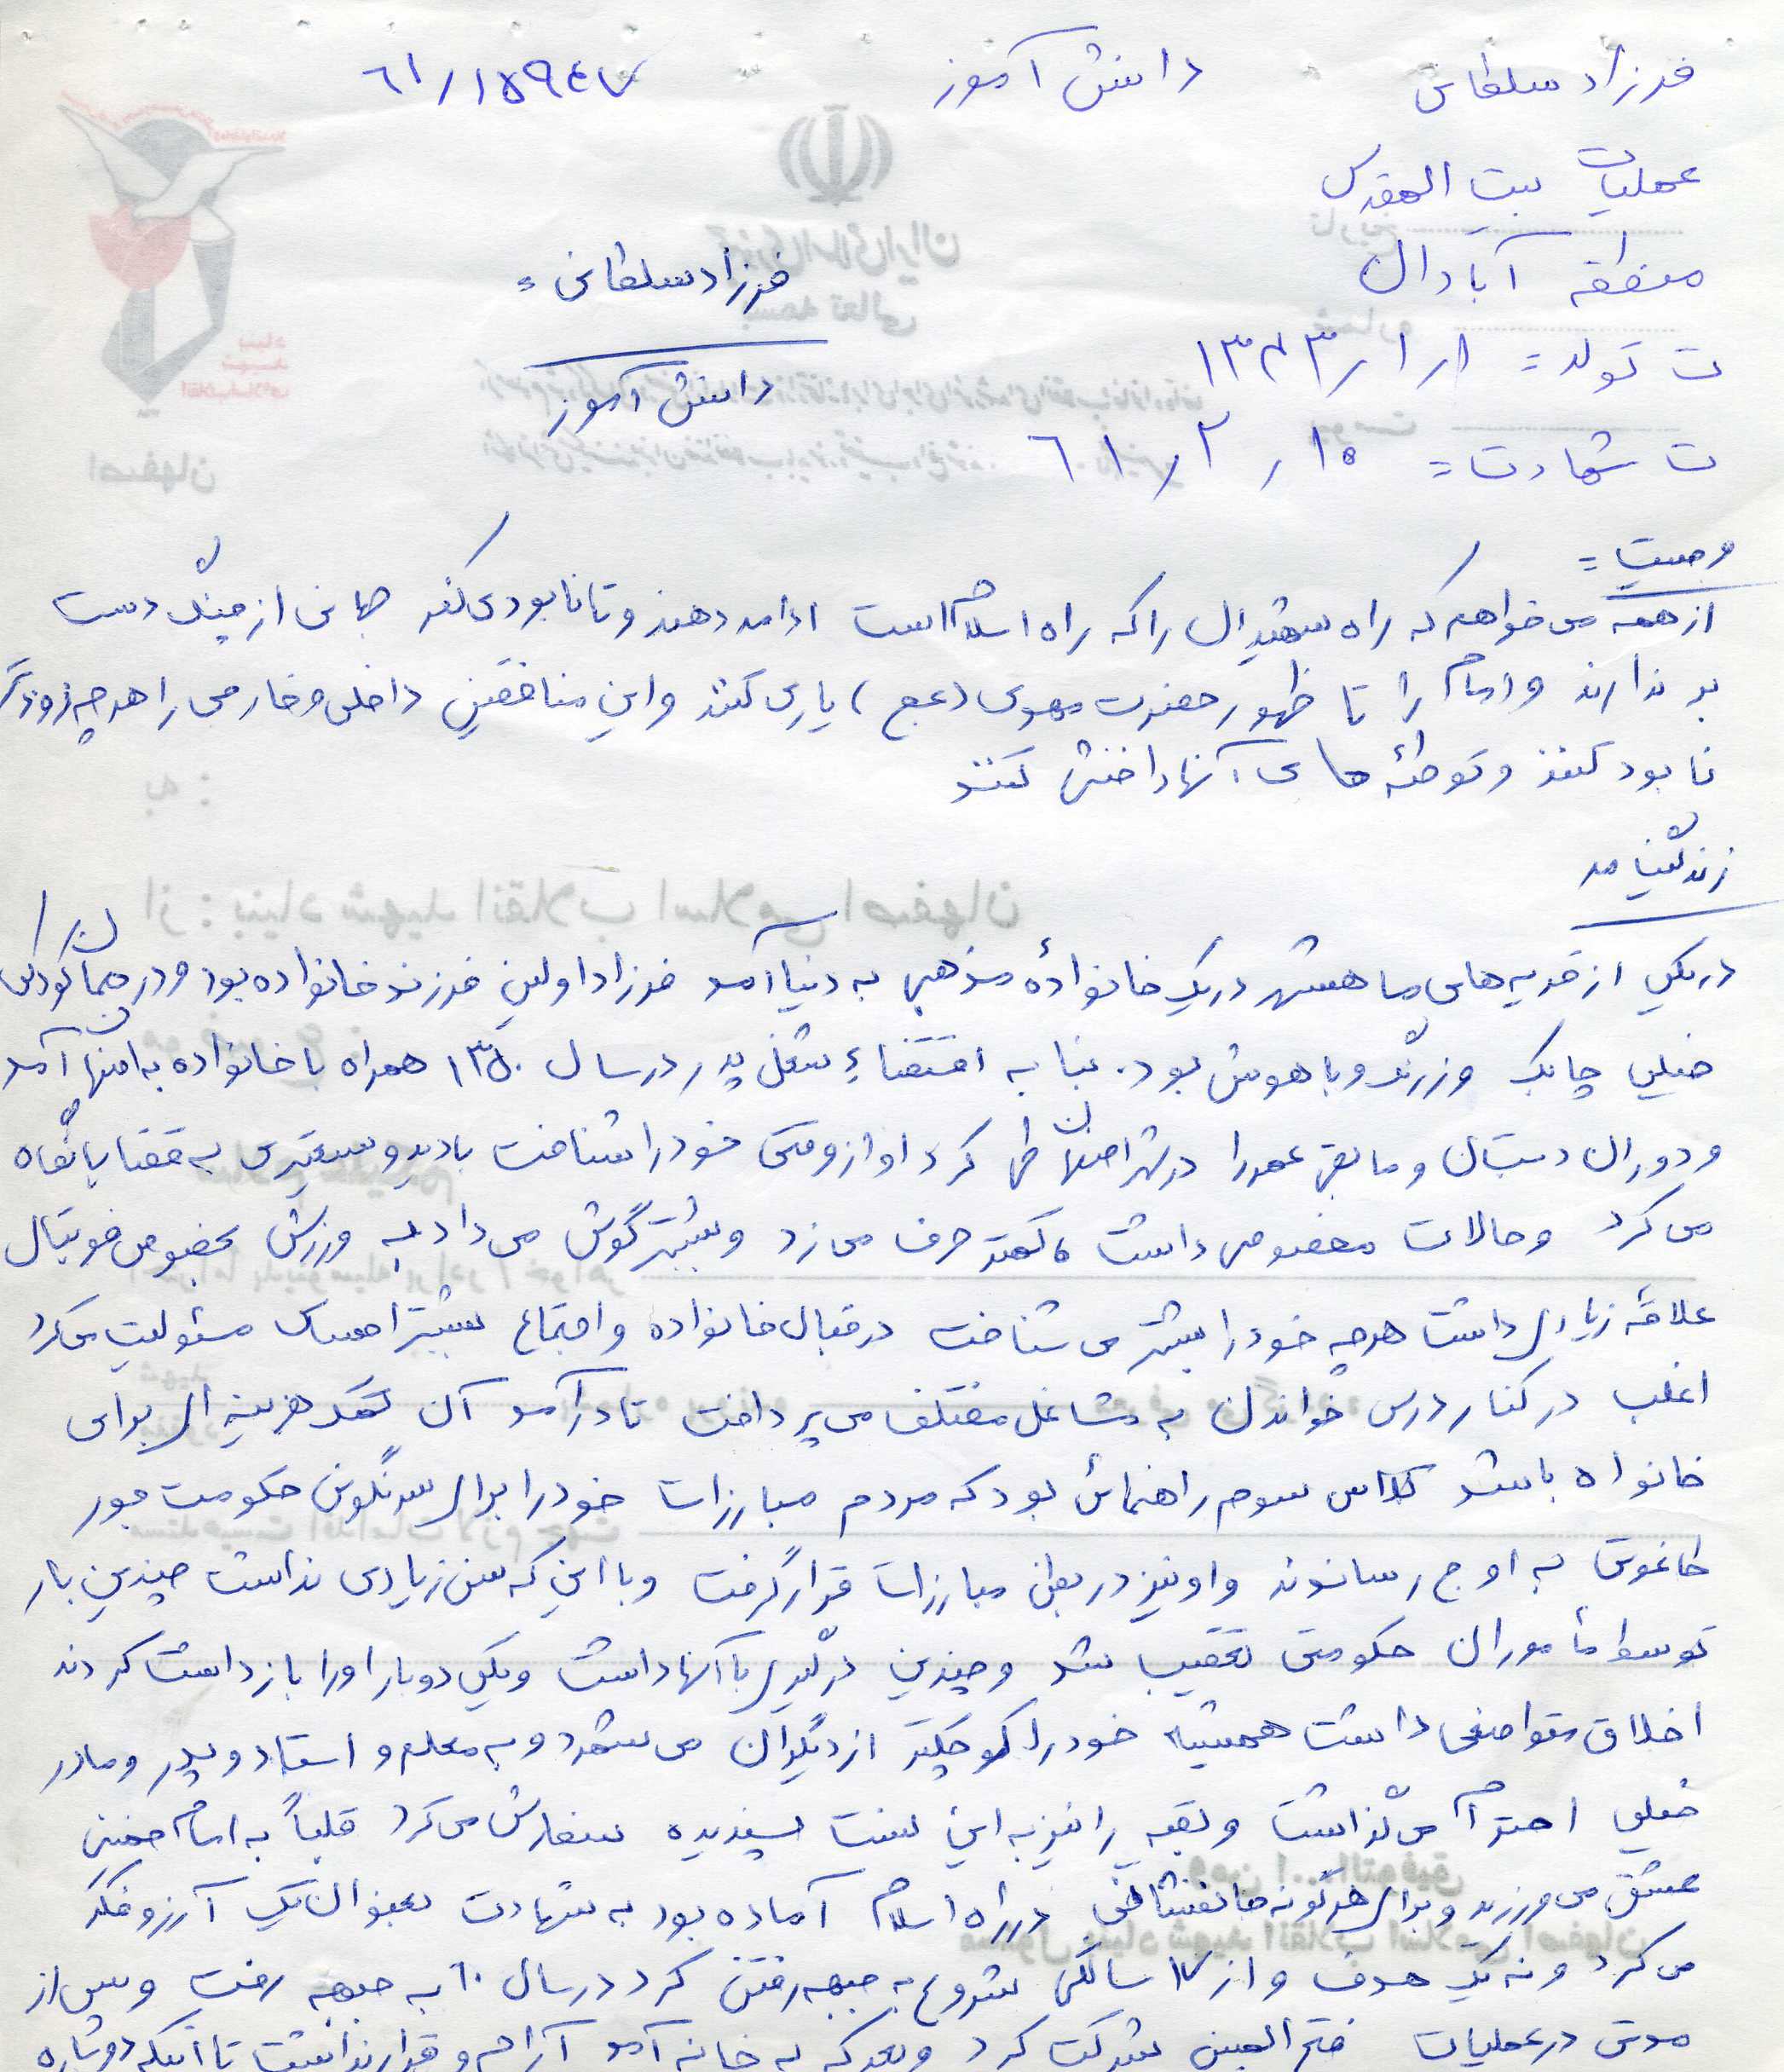 فرزاد سلطانی دانش آموز ۶۱/۱۵۹۴۷
عملیات بیت المقدس
منطقه آبادان
فرزاد سلطانی =
ت تولد = ۱/۱/۱۳۴۳
دانش آموز
ت شهادت = ۱۰/۲/۶۱
وصیت =
از همه می خواهم که راه شهیدان را که راه اسلام است ادامه دهند و تا نابودی کفر جهانی از جنگ دست
بر ندارند و امام را تا ظهور حضرت مهدی (عج) یاری کنند و این منافقین داخلی و خارجی را هر چه زودتر
نابود کنند و توطئه های آنها را خنثی کنند
زندگینامه
در یکی از قریه های ماهشهر در یک خانوادهٔ مذهبی به دنیا آمد فرزاد اولین فرزند خانواده بود و در همان کودکی
خیلی چابک و زرنگ و با هوش بود. بنا به اقتضاء شغل پدر در سال ۱۳۵۰ همراه با خانواده به اصفهان آمد
و دوران دبستان و مابقی عمر را در شهر اصفهان طی کرد او از وقتی خود را شناخت با دید وسیعتری به قضایا نگاه
می کرد و حالات مخصوصی داشت کمتر حرف می زد و بیشتر گوش می داد به ورزش بخصوص فوتبال
علاقه زیادی داشت هر چه خود را بیشتر می شناخت در قبال خانواده و اجتماع بیشتر احساس مسئولیت می کرد
اغلب در کنار درس خواندن به مشاغل مختلف می پرداخت تا درآمد آن کمک هزینه ای برای
خانواده باشد کلاس سوم راهنمائی بود که مردم مبارزات خود را برای سرنگونی حکومت جور
طاغوتی به اوج رساندند و او نیز در بطن مبارزات قرار گرفت و با این که سن زیادی نداشت چندین بار
توسط مأموران حکومتی تعقیب شد و چندین درگیری با آنها داشت و یکی دو بار او را بازداشت کردند
اخلاق متواضعی داشت همیشه خود را کوچکتر از دیگران می شمرد و به معلم و استاد و پدر و مادر
خیلی احترام می گذاشت و بقیه را نیز به این سنت پسندیده سفارش می کرد قلباً به امام خمینی
عشق می ورزید و برای هر گونه جانفشانی در راه اسلام آماده بود به شهادت بعنوان یک آرزو فکر
می کرد و نه یک هدف و از ۱۷ سالگی شروع به جبهه رفتن کرد در سال ۶۰ به جبهه رفت و پس از
مدتی در عملیات فتح المبین شرکت کرد و بعد که به خانه آمد آرام و قرار نداشت تا اینکه دوباره